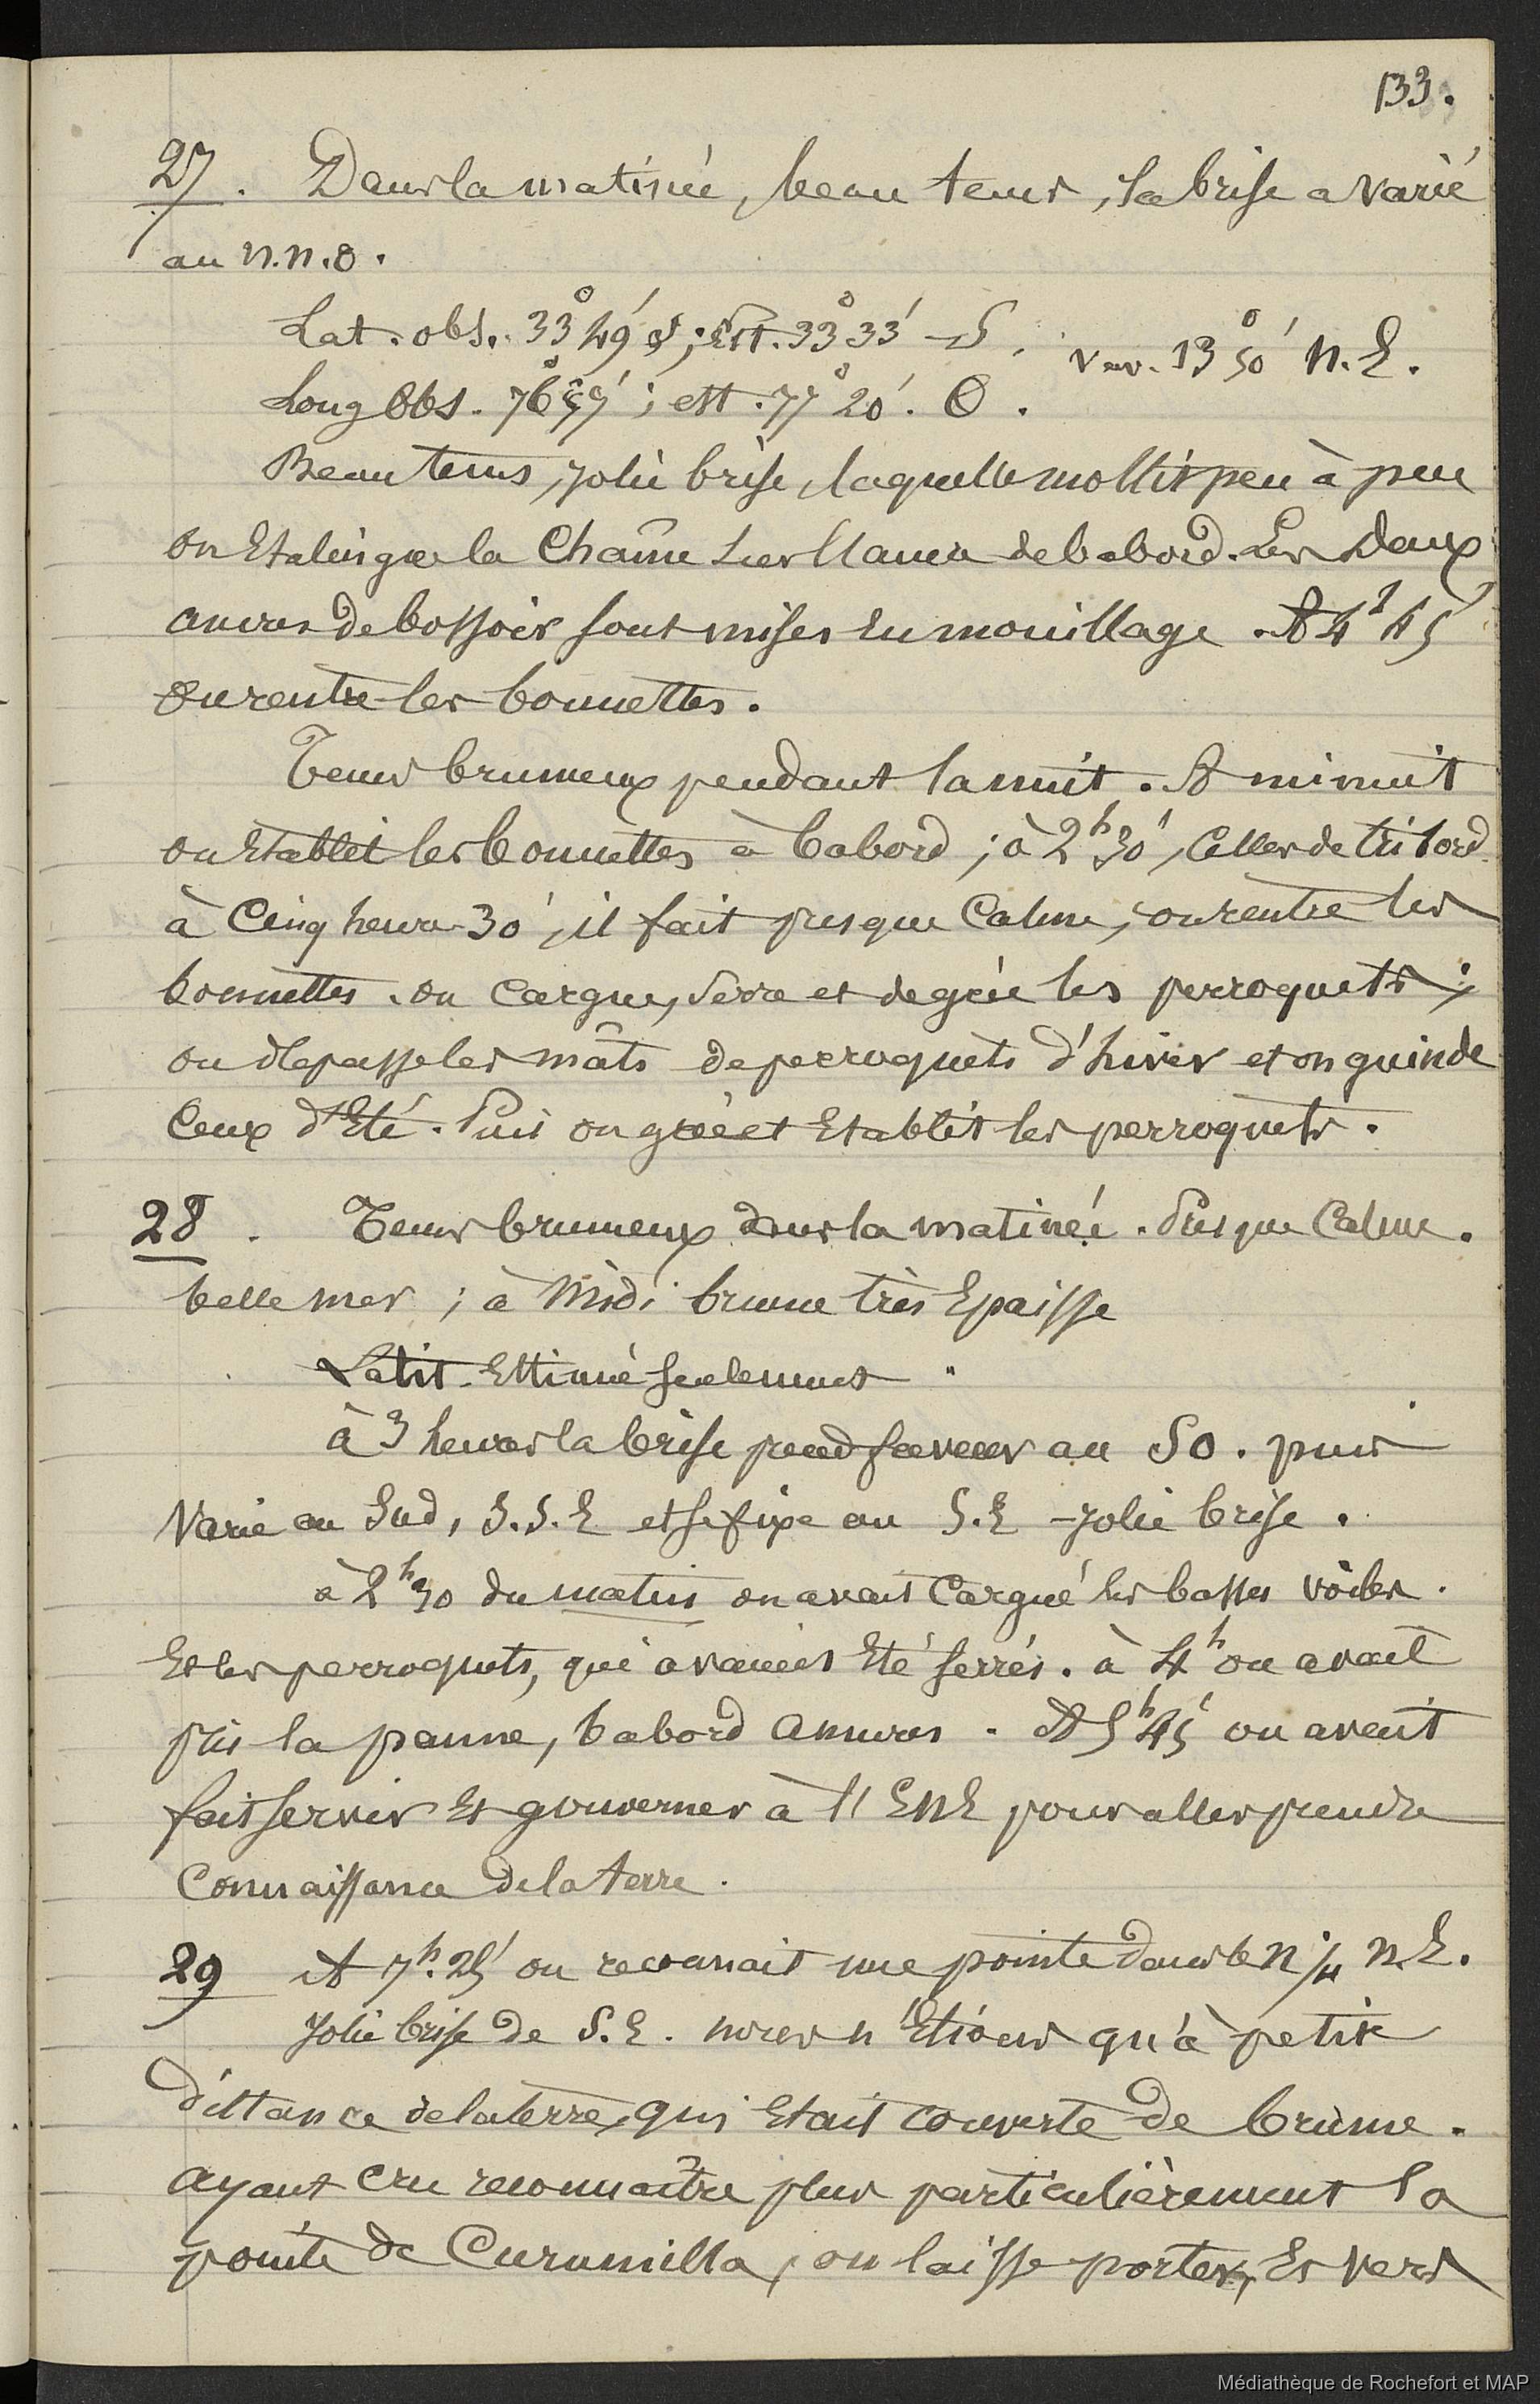 133.
27. Dans la matinée, beau tems, la brise a varié
au N.N.O.
Lat. obs. 33° 49' S ; Est. 33° 33' S. Var. 13° 50' N.E.
Long Obs. 76° 57' ; est. 77° 20'. O.
Beau tems, jolie brise, laquelle mollit peu à peu
on Etalingue la Chaîne sur l'ancre de babord. Les Deux
ancres de bossoir sont mises en mouillage. A 4h 45'
on rentre les bonnettes.
Tems brumeux pendant la nuit. A minuit
on Etablit les bonnettes à babord ; à 2h 30', Celles de tribord
à Cinq heures 30', il fait presque Calme, on rentre les
bonnettes. on Cargue, serre et degrée les perroquets ;
on depasse les mâts de perroquets d'hiver et on guinde
Ceux d'Eté. Puis on grée et Etablit les perroquets.
28. Tems brumeux dans la matinée. Presque Calme.
belle mer ; à Midi brume très Epaisse
Latit. Estimée seulement "
à 3 heures la brise prend faveur au SO. puis
Varie au Sud, S.S.E et se fixe au S.E - Jolie brise.
à 2h 30 du matin on avait Cargué les basses voiles.
Et les perroquets, qui avaient Eté serrés. à 4h on avait
pris la panne, babord amures. A 5h 45' on avait
fait servir Et gouverner à l'ENE pour aller prendre
Connaissance de la terre.
29 A 7h. 25' on reconnait une pointe dans le N 1/4 N.E.
Jolie brise de S.E. nous n'Etions qu'à petite
distance de la terre, qui Etait couverte de brume.
ayant cru reconnaître plus particulièrement la
pointe de Curumilla, on laisse porter, Et vers
Médiathèque de Rochefort et MAP